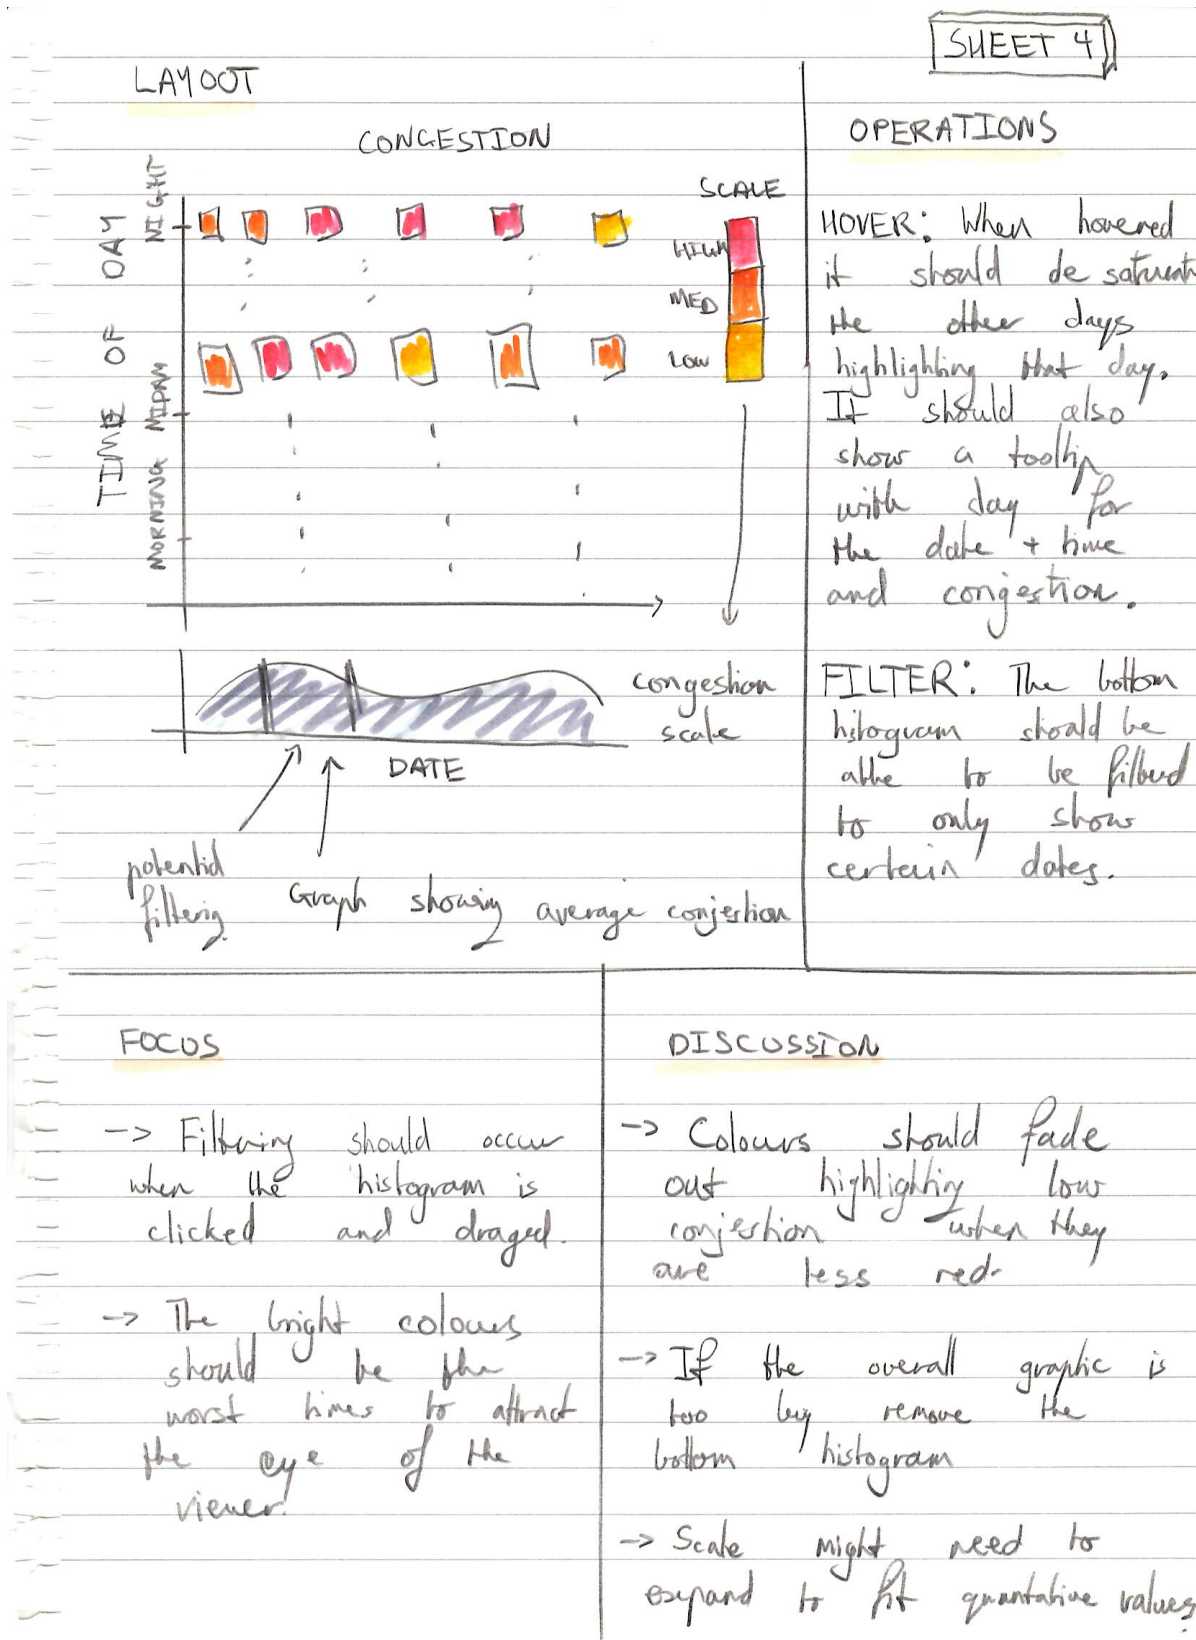 SHEET 4
LAYOUT
CONGESTION
TIME OF DAY
NIGHT
MIDDAY
MORNING
SCALE
HIGH
MED
LOW
congestion
scale
DATE
potential
filtering
Graph showing average conjestion
OPERATIONS
HOVER: When hovered
it should de saturate
the other days
highlighting that day.
It should also
show a tooltip
with day for
the date + time
and congestion.
FILTER: The bottom
histogram should be
able to be filtered
to only show
certain dates.
FOCUS
-> Filtering should occur
when the histogram is
clicked and draged.
-> The bright colours
should be the
worst times to attract
the eye of the
viewer.
DISCUSSION
-> Colours should fade
out highlighting low
conjestion when they
are less red.
-> If the overall graphic is
too busy remove the
bottom histogram
-> Scale might need to
expand to fit quantative values.